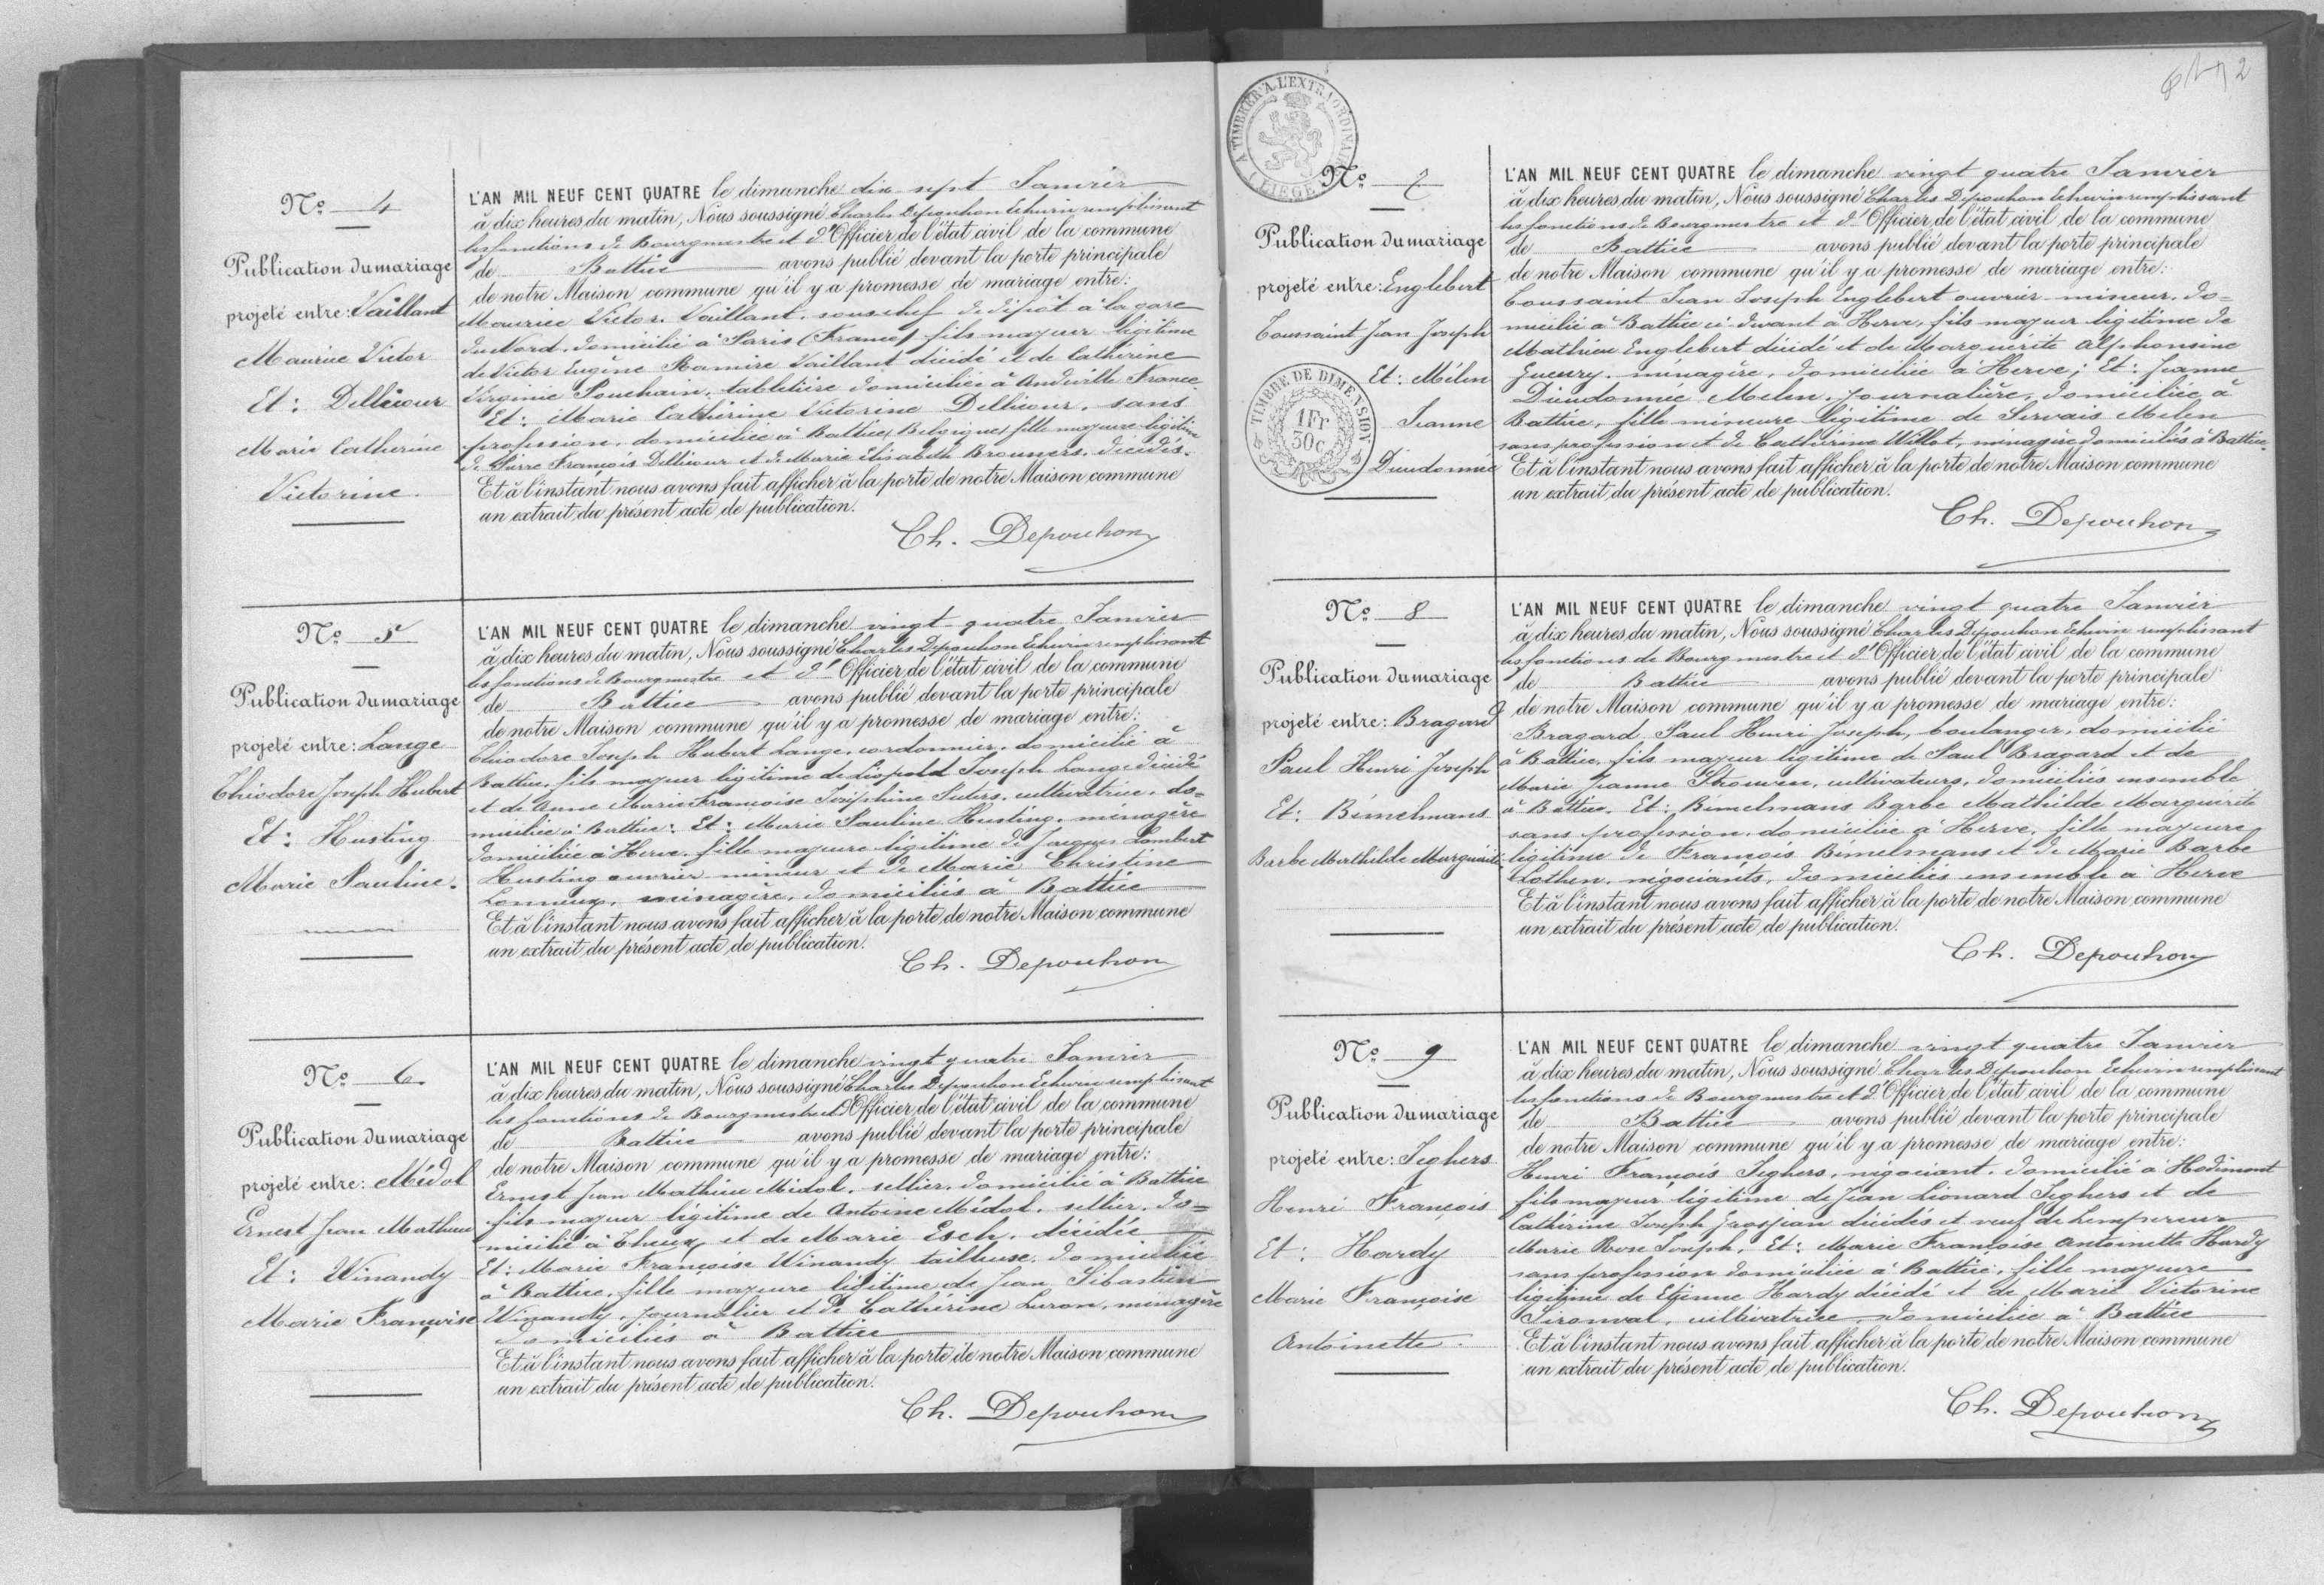 Nº 4
Publication du mariage
projeté entre: Vaillant
Maurice Victor
Et: Dellicour
Marie Catherine
Victorine.
L'AN MIL NEUF CENT QUATRE le dimanche dix sept Janvier
à dix heures du matin, Nous soussigné Charles Depouhon Echevin remplissant
les fonctions de Bourgmestre et d'Officier de l'état civil de la commune
de Battice avons publié devant la porte principale
de notre Maison commune qu'il y a promesse de mariage entre:
Maurice Victor Vaillant, sous chef de dépôt à la gare
du Nord, domicilié à Paris (France) fils majeur légitime
de Victor Eugène Ramire Vaillant décédé et de Catherine
Virginie Pouchain, tabletière domiciliée à Andeville France
Et: Marie Catherine Victorine Dellicour, sans
profession, domiciliée à Battice (Belgique) fille majeure légitime
de Pierre François Dellicour et de Marie Elisabeth Brouwers, décédés.
Et à l'instant nous avons fait afficher à la porte de notre Maison commune
un extrait du présent acte de publication.
Ch. Depouhon
Nº 5
Publication du mariage
projeté entre: Lange
Théodore Joseph Hubert
Et: Husting
Marie Pauline.
L'AN MIL NEUF CENT QUATRE le dimanche vingt quatre Janvier
à dix heures du matin, Nous soussigné Charles Depouhon Echevin remplissant
les fonctions de Bourgmestre et d'Officier de l'état civil de la commune
de Battice avons publié devant la porte principale
de notre Maison commune qu'il y a promesse de mariage entre:
Théodore Joseph Hubert Lange, cordonnier, domicilié à
Battice, fils majeur légitime de Léopold Joseph Lange décédé
et de Anne Marie Françoise Joséphine Peters, cultivatrice, do=
miciliée à Battice: Et: Marie Pauline Husting, ménagère
domiciliée à Herve, fille majeure légitime de Jacques Lambert
Husting ouvrier mineur et de Marie Christine
Lonneux, ménagère, domiciliés à Battice
Et à l'instant nous avons fait afficher à la porte de notre Maison commune
un extrait du présent acte de publication.
Ch. Depouhon
Nº 6.
Publication du mariage
projeté entre: Midol
Ernest Jean Mathieu
Et: Winandy
Marie Françoise
L'AN MIL NEUF CENT QUATRE le dimanche vingt quatre Janvier
à dix heures du matin, Nous soussigné Charles Depouhon Echevin remplissant
les fonctions de Bourgmestre et d'Officier de l'état civil de la commune
de Battice avons publié devant la porte principale
de notre Maison commune qu'il y a promesse de mariage entre:
Ernest Jean Mathieu Midol, sellier, domicilié à Battice
fils majeur légitime de Antoine Midol, sellier, do=
micilié à Theux et de Marie Esch, décédée
Et: Marie Françoise Winandy tailleuse, domiciliée
à Battice, fille majeure légitime de Jean Sébastien
Winandy, journalier et de Cathérine Luron, ménagère
domiciliés à Battice
Et à l'instant nous avons fait afficher à la porte de notre Maison commune
un extrait du présent acte de publication.
Ch. Depouhon
2
A TIMBRER A L'EXTRAORDINAIRE
LIEGE
Nº 7
Publication du mariage
projeté entre: Englebert
Toussaint Jean Joseph
Et: Mélen
Jeanne
Dieudonnée
TIMBRE DE DIMENSION
1Fr
50c
L'AN MIL NEUF CENT QUATRE le dimanche vingt quatre Janvier
à dix heures du matin, Nous soussigné Charles Depouhon Echevin remplissant
les fonctions de Bourgmestre et d'Officier de l'état civil de la commune
de Battice avons publié devant la porte principale
de notre Maison commune qu'il y a promesse de mariage entre:
Toussaint Jean Joseph Englebert ouvrier mineur, do=
micilié à Battice ci-devant à Herve, fils majeur légitime de
Mathieu Englebert décédé et de Marguerite Alphonsine
ménagère, domiciliée à Herve; Et: Jeanne
Dieudonnée Melen, journalière, domiciliée à
Battice, fille mineure légitime de Servais Melen
sans profession et de Cathérine Willot, ménagère domiciliés à Battice
Et à l'instant nous avons fait afficher à la porte de notre Maison commune
un extrait du présent acte de publication.
Ch. Depouhon
Nº 8
Publication du mariage
projeté entre: Bragard
Paul Henri Joseph
Et: Bémelmans
Barbe Mathilde Marguerite
L'AN MIL NEUF CENT QUATRE le dimanche vingt quatre Janvier
à dix heures du matin, Nous soussigné Charles Depouhon Echevin remplissant
les fonctions de Bourgmestre et d'Officier de l'état civil de la commune
de Battice avons publié devant la porte principale
de notre Maison commune qu'il y a promesse de mariage entre:
Bragard Paul Henri Joseph, boulanger, domicilié
à Battice, fils majeur légitime de Paul Bragard et de
Marie Jeanne Thouven, cultivateurs, domiciliés ensemble
à Battice. Et: Bémelmans Barbe Mathilde Marguerite
sans profession, domiciliée à Herve, fille majeure
légitime de François Bémelmans et de Marie Barbe
Lothen, négociants, domiciliés ensemble à Herve
Et à l'instant nous avons fait afficher à la porte de notre Maison commune
un extrait du présent acte de publication.
Ch. Depouhon
Nº 9
Publication du mariage
projeté entre: Seghers
Henri François
Et: Hardy
Marie Françoise
Antoinette.
L'AN MIL NEUF CENT QUATRE le dimanche vingt quatre Janvier
à dix heures du matin, Nous soussigné Charles Depouhon Echevin remplissant
les fonctions de Bourgmestre et d'Officier de l'état civil de la commune
de Battice avons publié devant la porte principale
de notre Maison commune qu'il y a promesse de mariage entre:
Henri François Seghers, négociant, domicilié à Hodimont
fils majeur légitime de Jean Léonard Seghers et de
Cathérine Joseph Grosjean décédés et veuf de Lempereur
Marie Rose Joseph, Et: Marie Françoise Antoinette Hardy
sans profession domiciliée à Battice, fille majeure
légitime de Etienne Hardy décédé et de Marie Victorine
Sironval, cultivatrice, domiciliée à Battice
Et à l'instant nous avons fait afficher à la porte de notre Maison commune
un extrait du présent acte de publication.
Ch. Depouhon